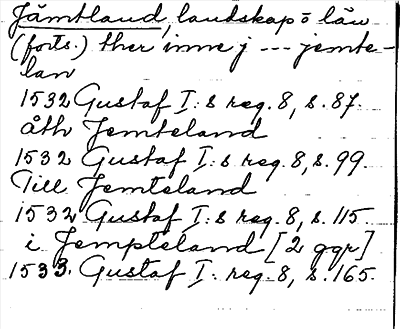 Jämtland, landskap o län
(forts.) ther inne j --- jemte-
lan
1532 Gustaf I:s reg. 8, s. 87.
åth Jemteland
1532 Gustaf I:s reg. 8, s. 99.
Till Jemteland
1532 Gustaf I:s reg. 8, s. 115.
i Jempteland [2 ggr]
1533. Gustaf I: reg. 8, s. 165.